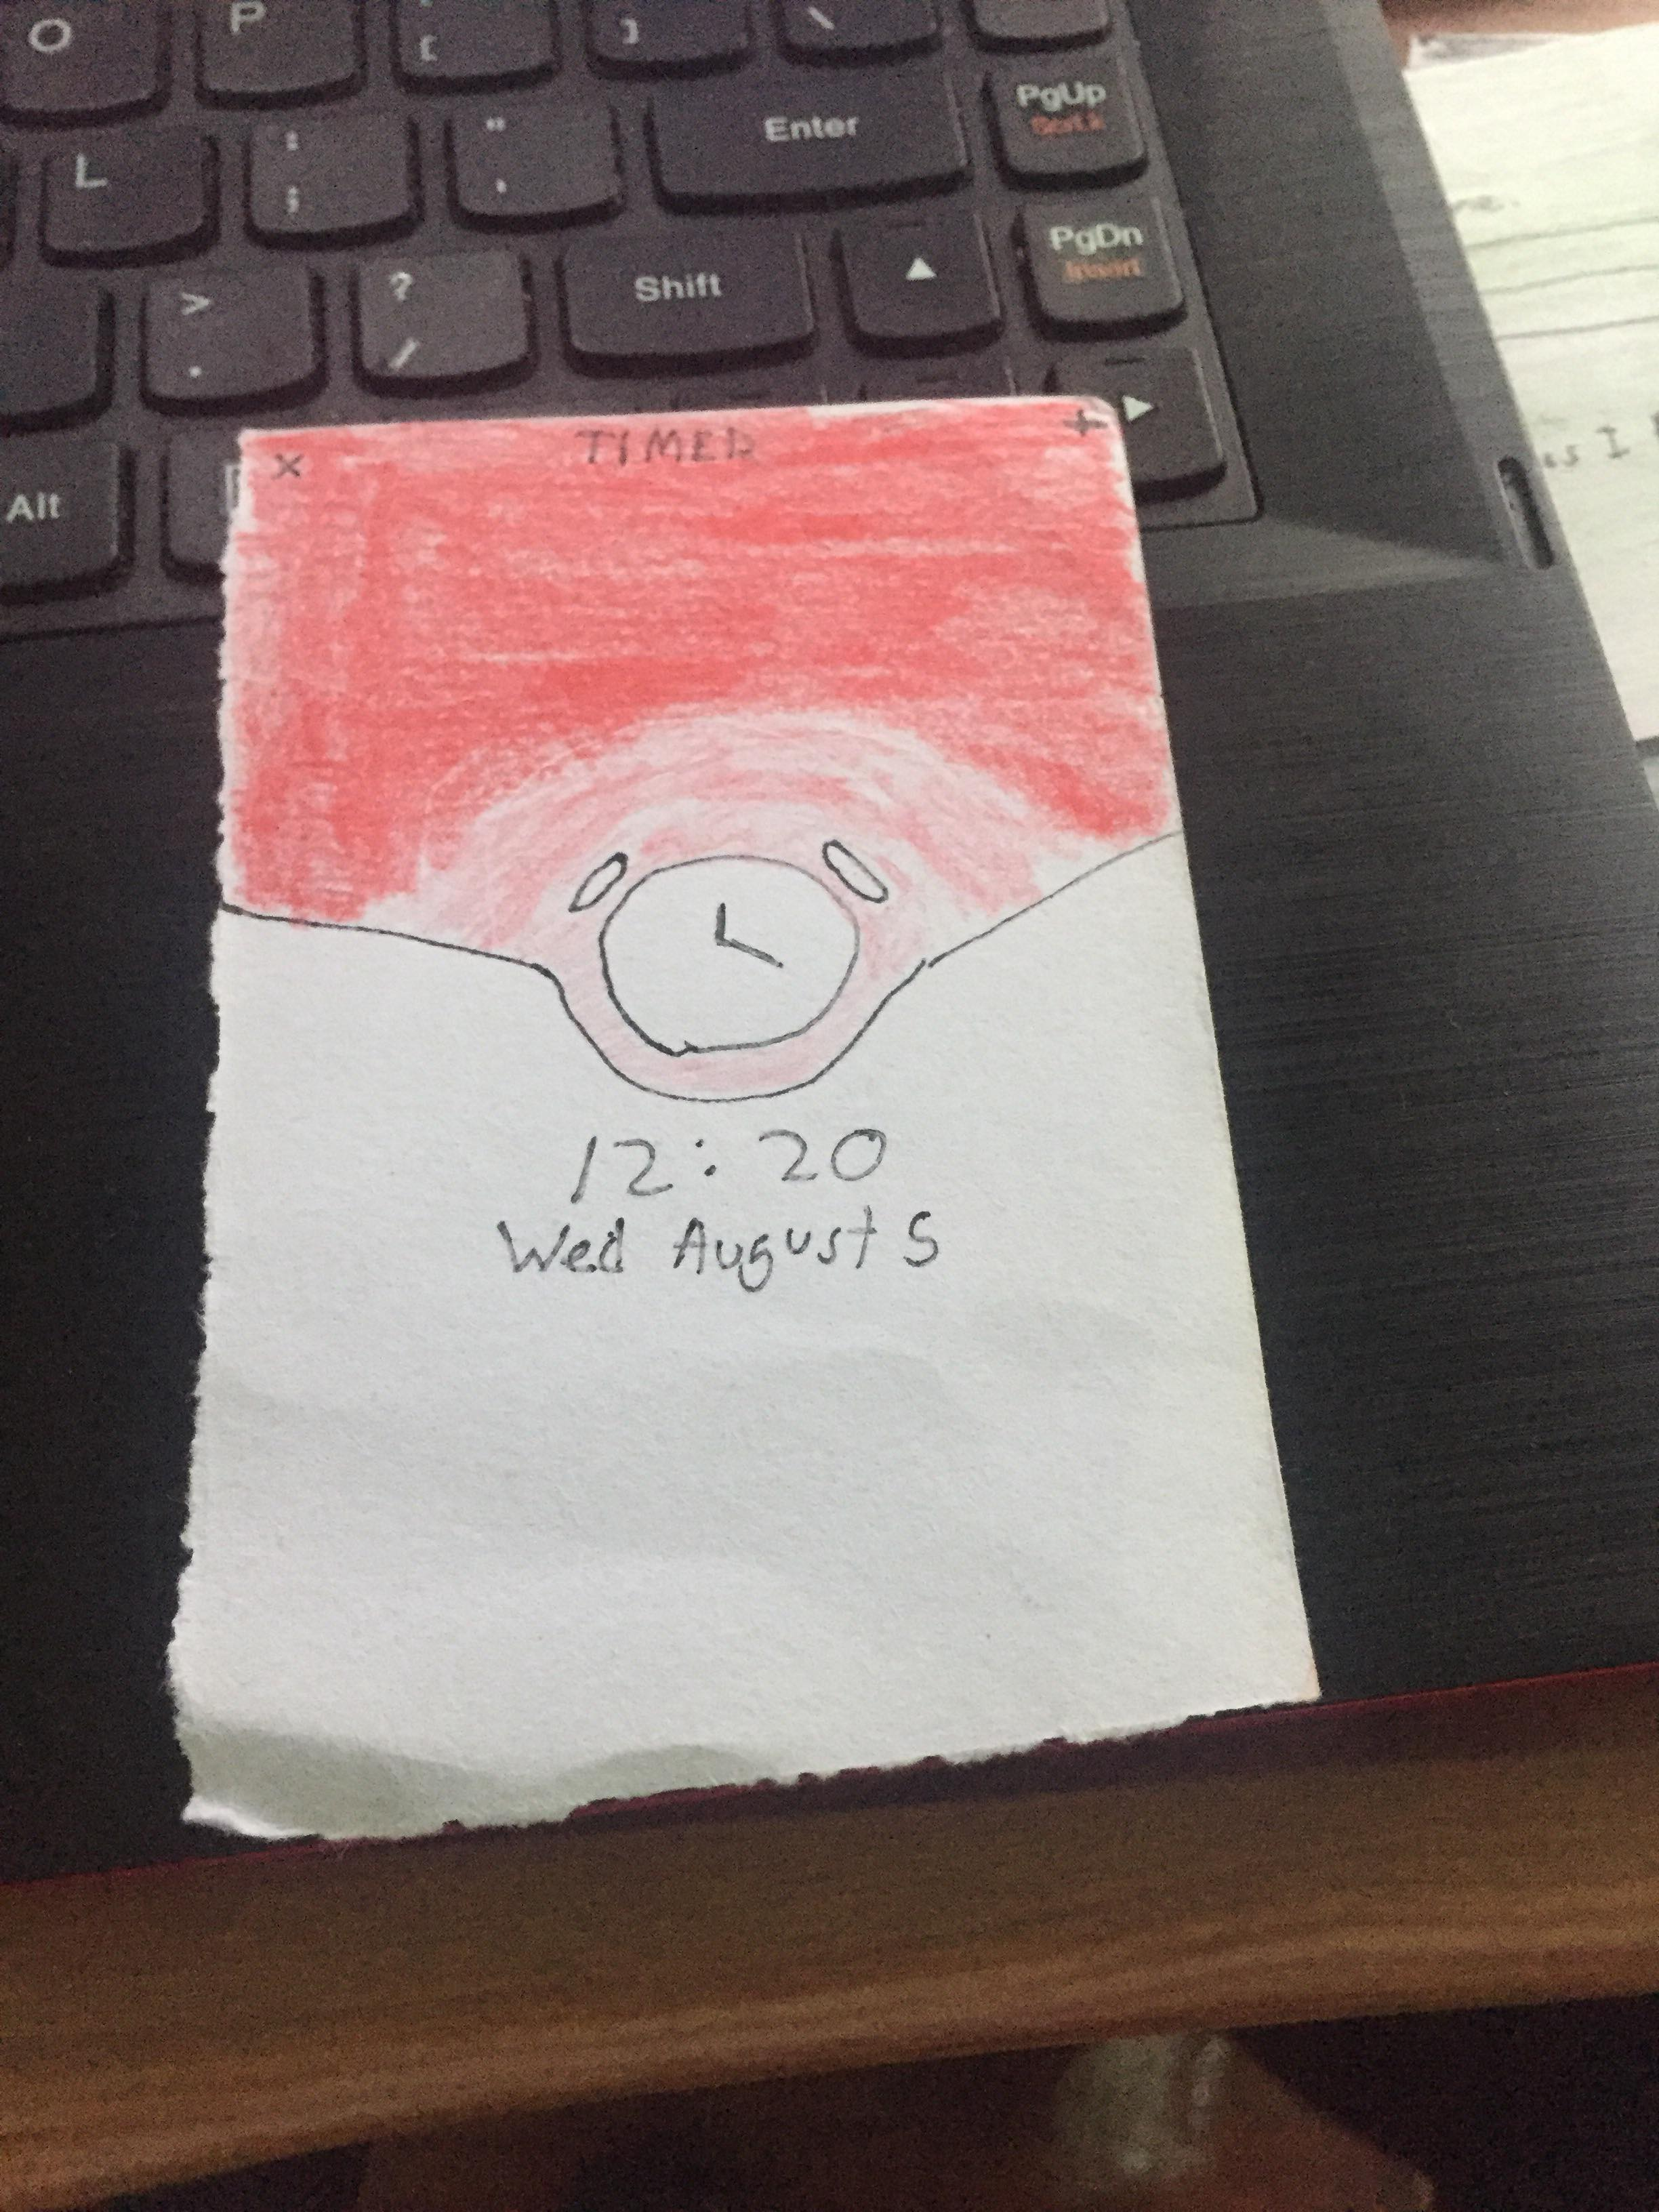 O P [ ] \
L : ; " ' Enter PgUp
> . ? / Shift PgDn
Insert
Alt
× TIMED +
12:20
Wed August 5
as I